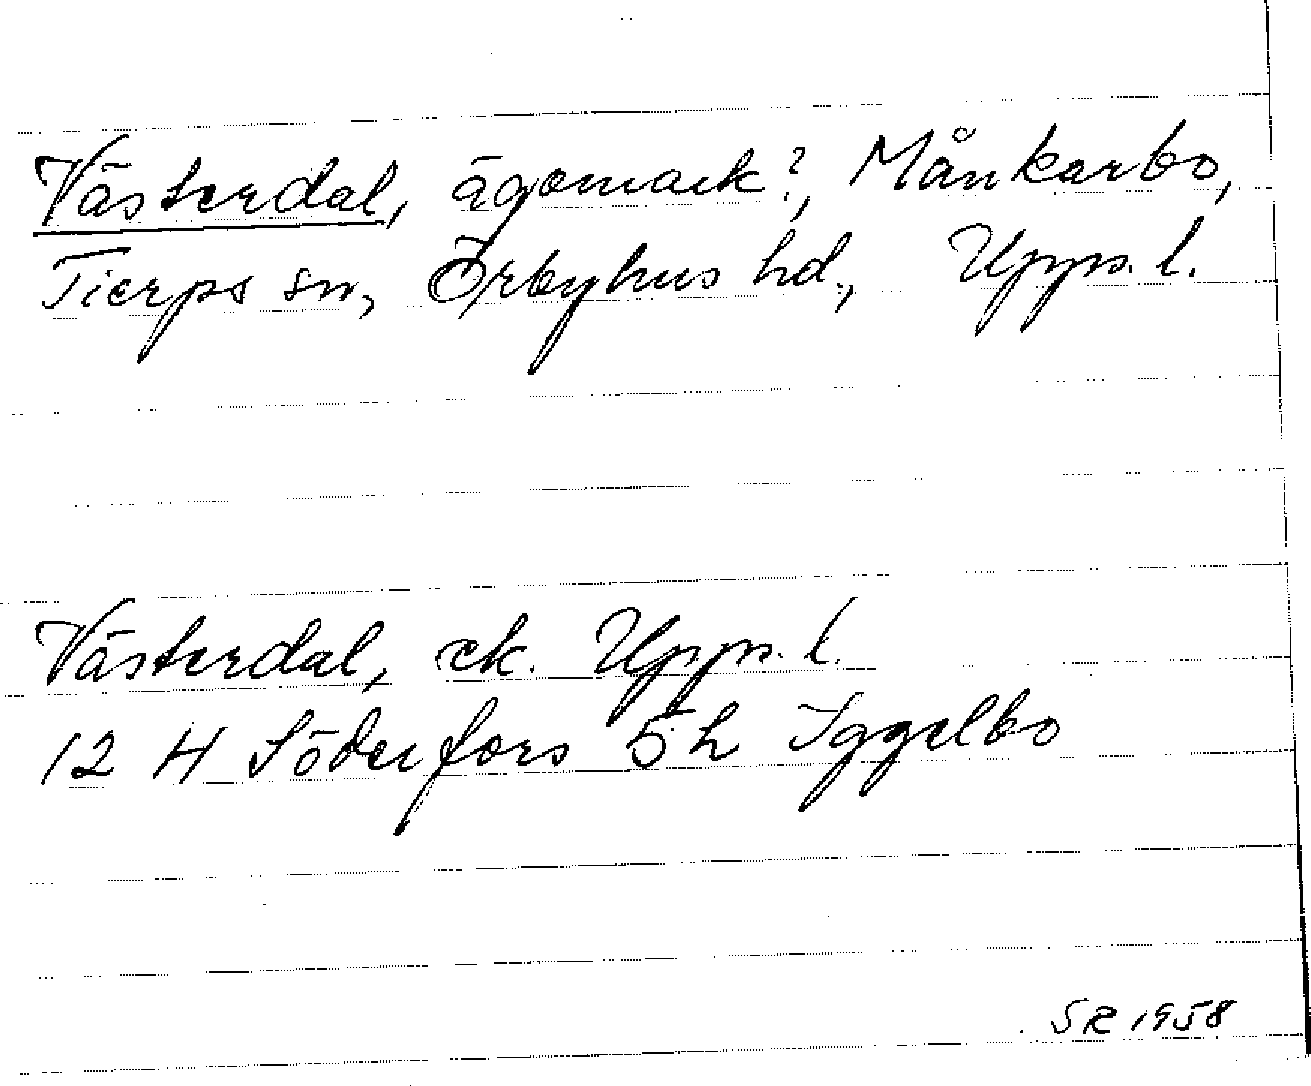 Västerdal, ägomark?, Månkarbo,
Tierps sn, Örbyhus hd., Upps. l.
Västerdal, ek. Upps. l.
12 H Söderfors 5 h Iggelbo
SR 1958